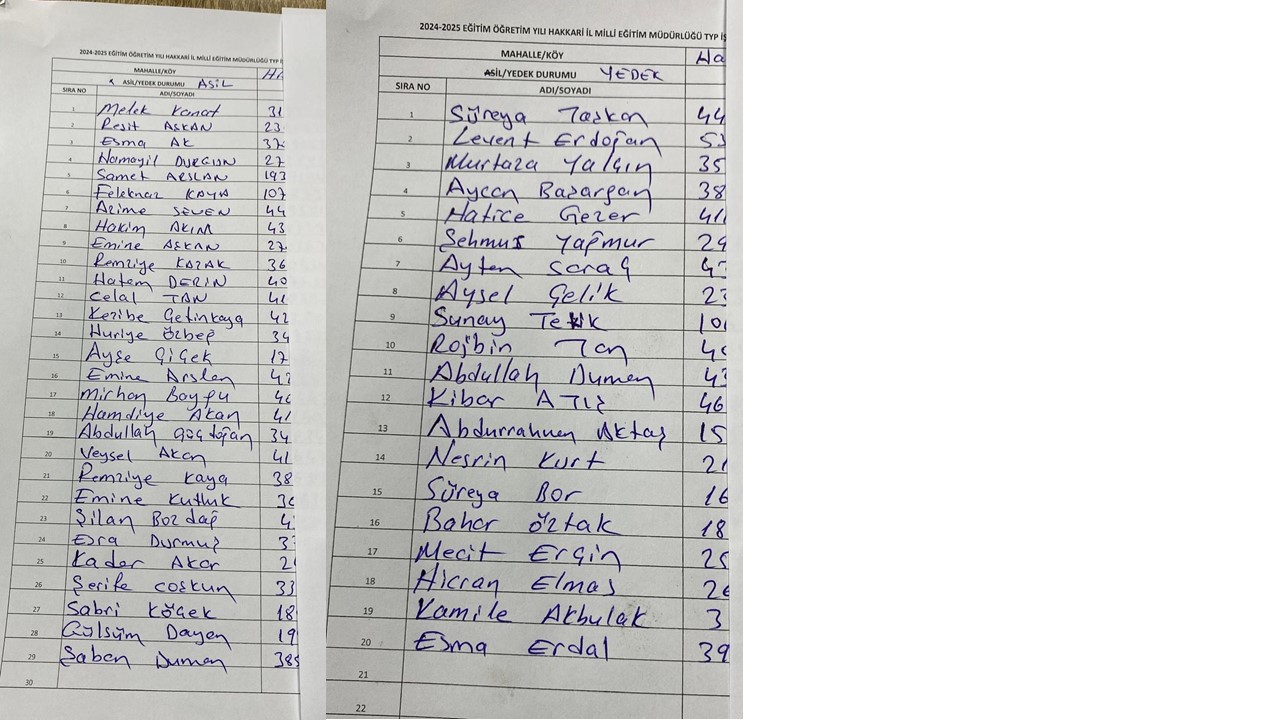 2024-2025 EĞİTİM ÖĞRETİM YILI HAKKARİ İL MİLLİ EĞİTİM MÜDÜRLÜĞÜ TYP İ
MAHALLE/KÖY
ASİL/YEDEK DURUMU ASİL
SIRA NO ADI/SOYADI
1 Melek Kanat 31
2 Reşit AŞKAN 23
3 Esma AK
4 Namayil DURGUN 27
5 Samet ARSLAN 193
6 Feleknaz KAYA 107
7 Azime SEVEN 44
8 Hakim AKIM 43
9 Emine AŞKAN 27
10 Remziye KAZAK 36
11 Hatem DERİN 40
12 Celal TAN 41
13 Kezibe Çetinkaya 42
14 Huriye Özbeğ 34
15 Ayşe Çiçek 17
16 Emine Arslan
17 Mirhan Boyğu
18 Hamdiye Akan 41
19 Abdullah Göçdoğan 34
20 Veysel Akan 41
21 Remziye Kaya 38
22 Emine Kutluk
23 Şilan Bozdağ
24 Esra Durmuş
25 Kader Akar
26 Şerife Coşkun 33
27 Sabri Köçek 18
28 Gülsüm Dayan 19
29 Şaban Duman 385
30
2024-2025 EĞİTİM ÖĞRETİM YILI HAKKARİ İL MİLLİ EĞİTİM MÜDÜRLÜĞÜ TYP İŞ
MAHALLE/KÖY Ha
ASİL/YEDEK DURUMU YEDEK
SIRA NO ADI/SOYADI
1 Süreya Taşkan 44
2 Levent Erdoğan
3 Murtaza Yalçın 35
4 Aycan Başarğan 38
5 Hatice Gezer
6 Şehmus Yağmur 29
7 Ayten Saraç
8 Aysel Çelik
9 Sunay Tekik
10 Rojbin Tan
11 Abdullah Duman
12 Kibar ATIŞ 46
13 Abdurrahman Aktaş 15
14 Nesrin Kurt
15 Süreya Bor 16
16 Bahar Öztak 18
17 Mecit Ergin 25
18 Hicran Elmas
19 Kamile Akbulak 3
20 Esma Erdal 39
21
22